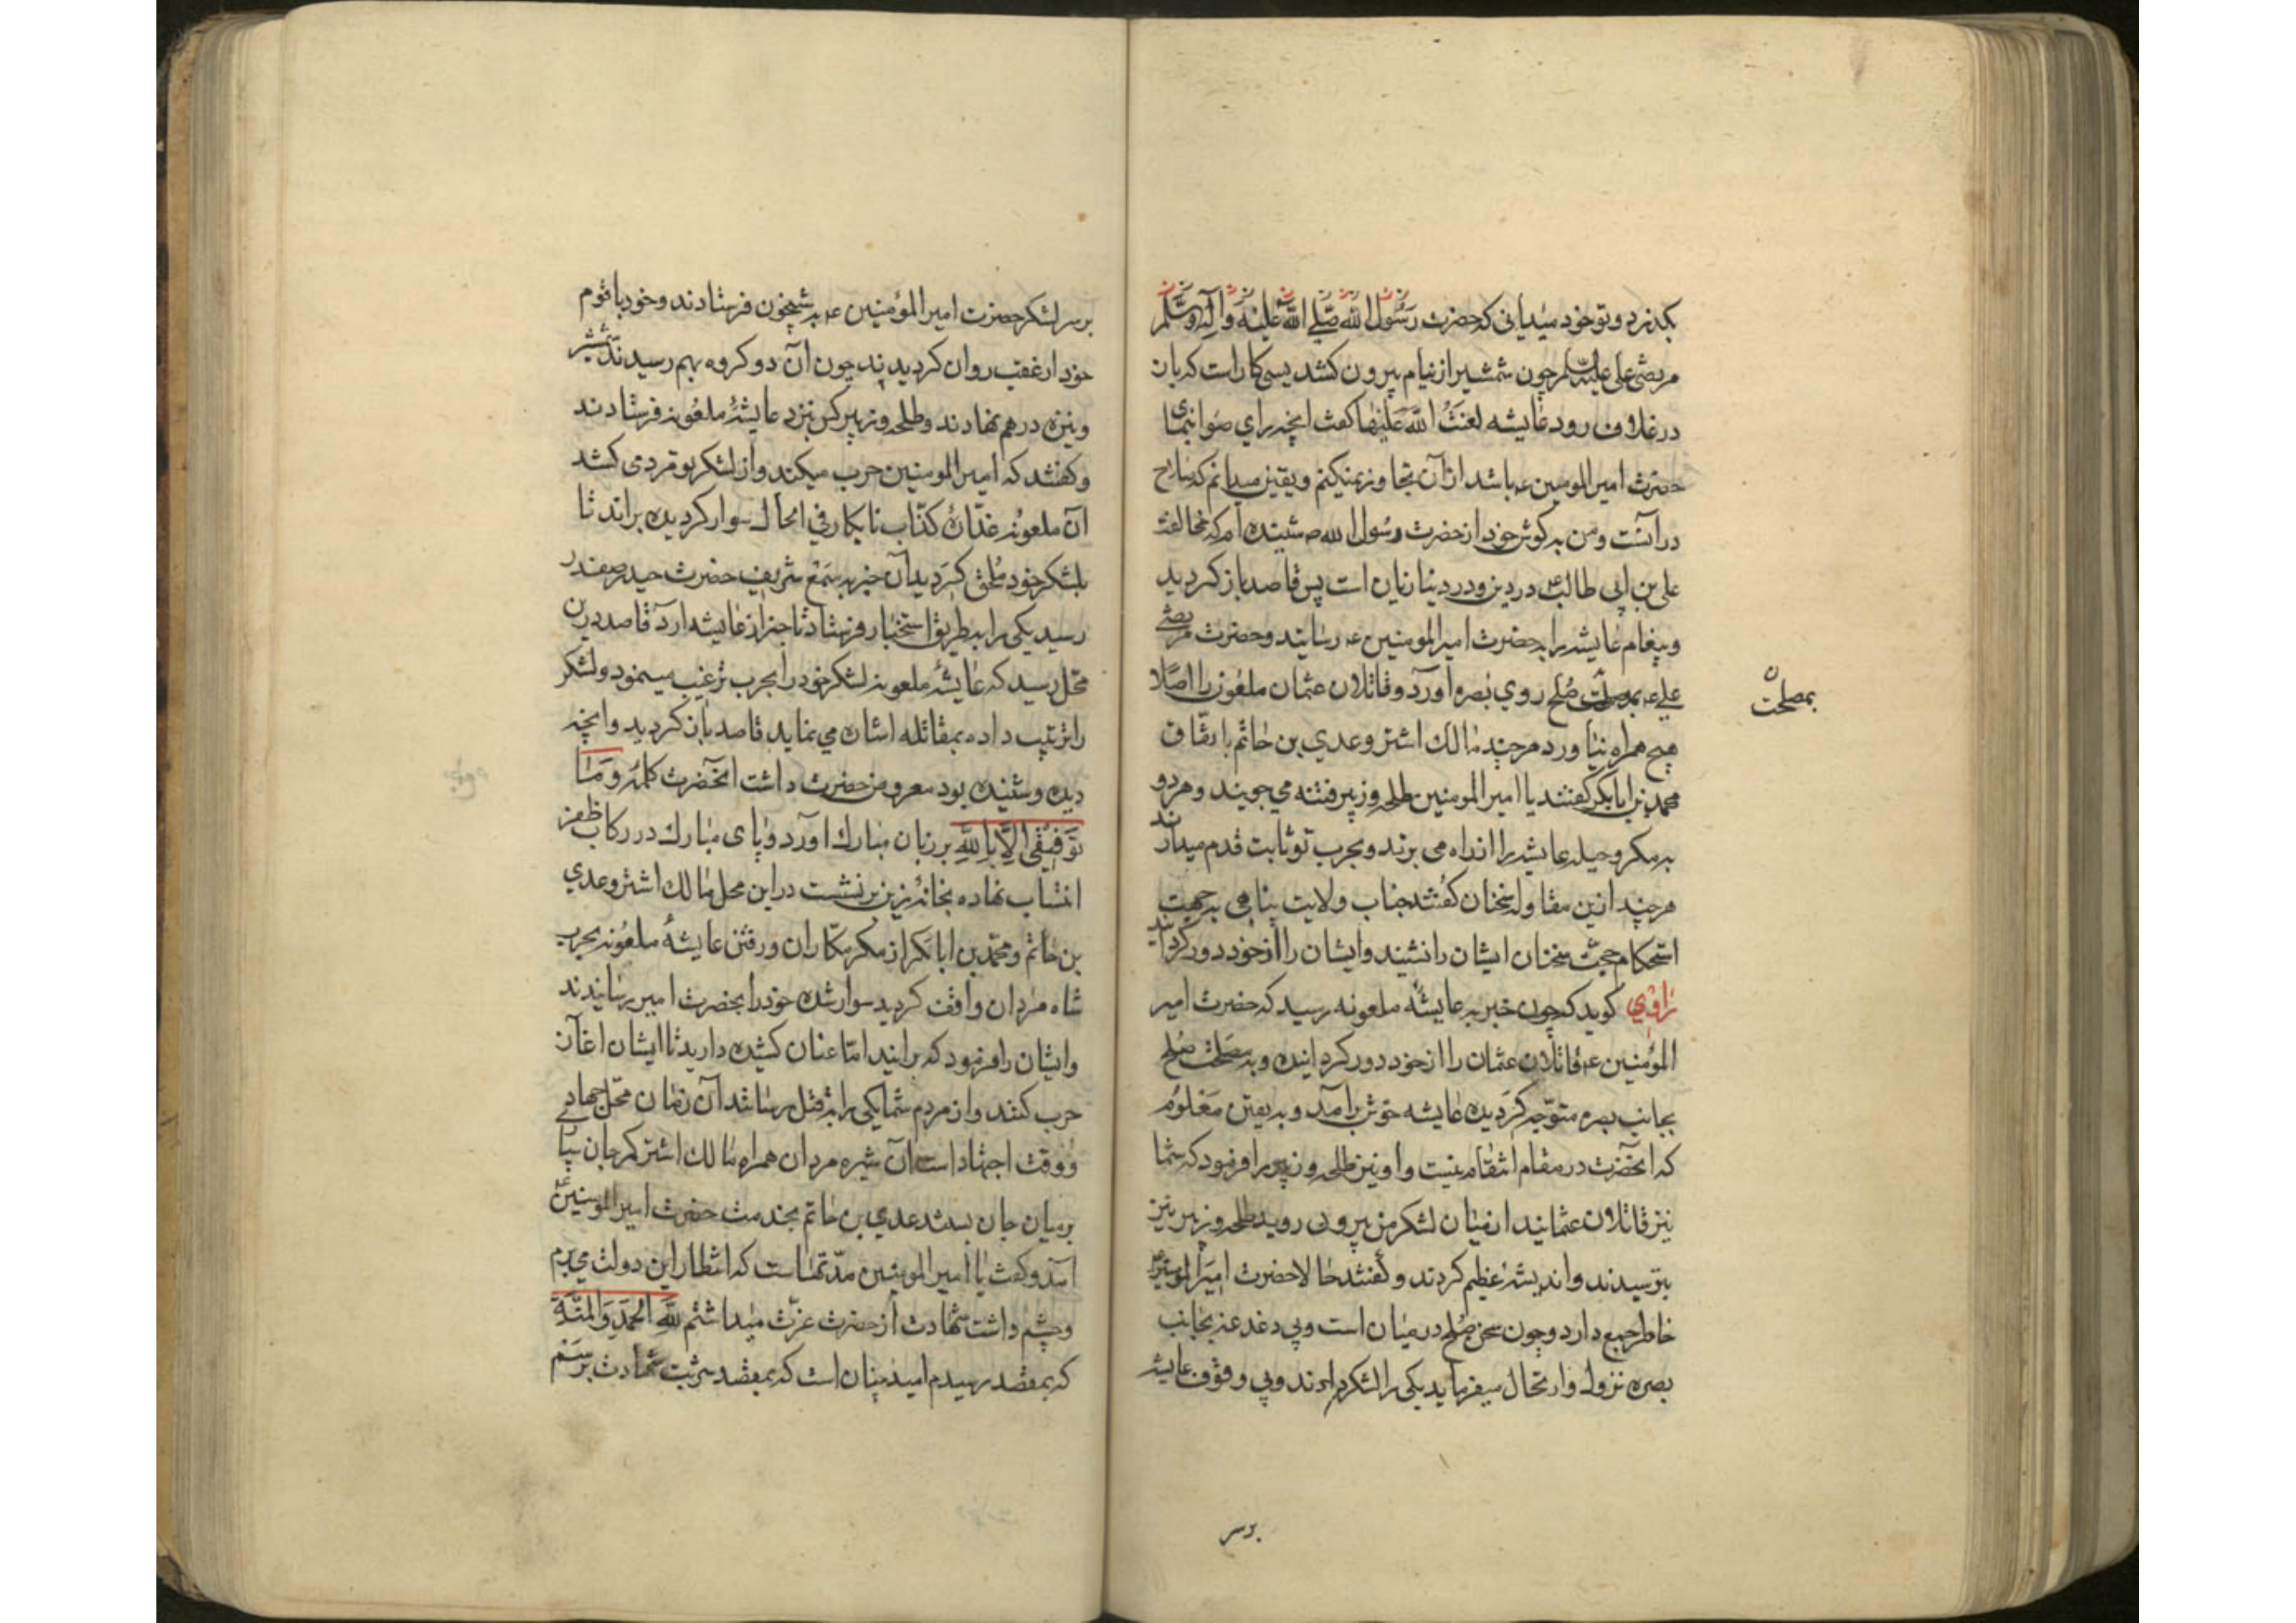 بکذرد و تو خود میدانی که حضرت رسول الله صلی الله علیه وآله وسلم
مرتضی علی علیه السلم چون شمشیر از نیام بیرون کشد بسی کار است که باز
در غلاف رود عایشه لعنت الله علیها کفت انچه رای صواب نمای
حضرت امیر المومنین ع باشد از آن تجاوز نمیکنم و یقین میدانم که صلاح
در آنست و من به کوش خود از حضرت رسول الله ص شنیده ام که مخالفت
علی بن ابی طالب ع در دین و در دنیا زیان است پس قاصد باز کردید
و پیغام عایشه را به حضرت امیر المومنین ع رسانید و حضرت مرتضی
علی ع بمصلحت صلح روی بصره آورد و قاتلان عثمان ملعون را اصلا
هیچ همراه نیاورد هر چند مالك اشتر و عدی بن حاتم باتفاق
محمد بن ابابکر کفتند یا امیر المومنین طلحه و زبیر فتنه می جویند و هر دو
به مکر و حیله عایشه را از راه می برند و بحرب تو ثابت قدم میدارند
هر چند ازین مقاوله سخنان کفتند جناب ولایت پناهی بجهت
استحکام حجت سخنان ایشان را نشنید و ایشان را از خود دور کردانید
راوی کوید که چون خبر به عایشه ملعونه رسید که حضرت امیر
المؤمنین ع قاتلان عثمان را از خود دور کردانیده و به مصلحت صلح
بجانب بصره متوجه کردیده عایشه خوش برآمد و به یقین معلوم
که انحضرت در مقام انتقام نیست و او نیز طلحه و زبیر را فرمود که شما
نیز قاتلان عثمانید از میان لشکر من بیرون روید طلحه و زبیر نیز
بترسیدند و اندیشه عظیم کردند و کفتند حالا حضرت امیر المومنین ع
خاطر جمع دارد و چون سخن صلح در میان است و بی دغدغه بجانب
بصره نزول و ارتحال میفرماید یکی را لشکر دادند و بی وقوف عایشه
بمصلحت
برسر
بر سر لشکر حضرت امیر المؤمنین ع به شبیخون فرستادند و خود با قوم
خود از عقب روان کردیدند چون آن دو کروه بهم رسیدند شمشیر
و نیزه در هم نهادند و طلحه و زبیر کس نزد عایشۀ ملعونه فرستادند
و کفتند که امیر المومنین حرب میکند و از لشکر تو مردمی کشد
آن ملعونه غدّاره کذّاب نابکار فی الحال سوار کردیده براند تا
بلشکر خود ملحق کردید آن خبر به سمع شریف حضرت حیدر صفدر
رسید یکی را به طریق استخبار فرستاد تا خبر از عایشه ارد قاصد در ین
محل رسید که عایشۀ ملعونه لشکر خود را بحرب ترغیب مینمود و لشکر
را ترتیب داده بمقاتله اشان می نماید قاصد باز کردید و انچه
دیده و شنیده بود معروض حضرت داشت انحضرت کلمۀ وَمَا
تَوفِیقی اِلّا بِاللهِ بر زبان مبارك اورد و پای مبارك در رکاب ظفر
انتساب نهاده بخانۀ زین بر نشست در این محل مالك اشتر و عدی
بن حاتم و محمّد بن ابابکر از مکر مکّاران و رفتن عایشۀ ملعونه بحرب
شاه مردان واقف کردید سوار شده خود را بحضرت امیر رسانیدند
و ایشان را فرمود که برانید امّا عنان کشیده دارید تا ایشان اغاز
حرب کنند و از مردم شما یکی را به قتل رسانند آن زمان محل جهاد
و وقت اجتهاد است آن شیره مردان همراه مالك اشتر کمر جان سپا
بر میان جان بستند عدی بن حاتم بخدمت حضرت امیر المومنین ع
آمد و کفت یا امیر المومنین مدّتهاست که انتظار این دولت می برم
و چشم داشت شهادت از حضرت عزّت میداشتم للهِ الحَمد وَالمِنّة
که بمقصد رسیدم امید چنان است که بمقصد شربت شهادت برسم